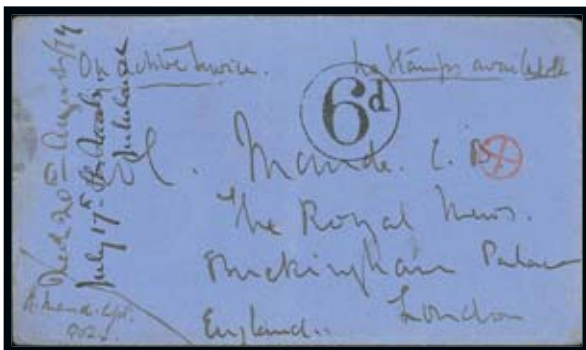 On active Service. No Stamps available
6d
Col. Maude. C.B
The Royal Mews.
Buckingham Palace
London
England..
Recd 20th August/79
July 17th